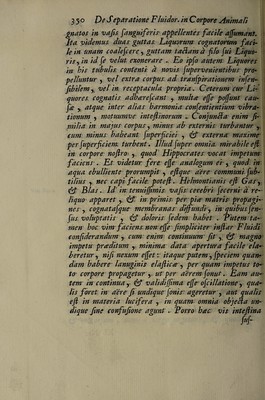 350 De Separatione Fluidor. in Corpore Animali
gnatos in vasis sanguiferis appellentes facile assumant.
Ita videmus duas guttas Liquorum cognatorum faci-
le in unam coalescere, guttam tactam à filo sui Liquo-
ris, in id se velut exonerare. Ex ipso autem Liquores
in his tubulis contenti à novis supervenientibus pro-
pelluntur, vel extra corpus ad transpirationem insen-
sibilem, vel in receptacula propria. Ceterum cur Li-
quores cognatis adhærescant, multæ esse possunt cau-
sæ, atque inter alias harmonia consentientium vibra-
tionum, motuumve intestinorum. Conjuncta enim si-
milia in majus corpus, minus ab externis turbantur,
cum minus habeant superficiei, & externa maxime
per superficiem turbent. Illud super omnia mirabile est
in corpore nostro, quod Hippocrates vocat impetum
faciens. Et videtur fere esse analogum ei, quod in
aqua ebulliente prorumpit, estque aëre communi sub-
tilius, nec capi facile potest. Helmontianis est Gas,
& Blas. Id in tenuissimis vasis cerebri secerni à re-
liquo apparet, & in primis per piæ matris propagi-
nes, cognatasque membranas diffundi, in quibus sen-
sus voluptatis, & doloris sedem habet. Putem ta-
men hoc vim faciens non esse simpliciter instar Fluidi
considerandum, cum enim continuum sit, & magno
impetu præditum, minima data apertura facile ela-
beretur, nisi nexum esset: itaque putem, speciem quan-
dam habere lanuginis elasticæ, per quam impetus to-
to corpore propagetur, ut per aërem sonus. Eam au-
tem in continua, & validissima esse oscillatione, qua-
lis foret in aëre si undique sonis ageretur, aut qualis
est in materia lucifera, in quam omnia objecta un-
dique sine confusione agunt. Porro hæc vis intestina
sus-